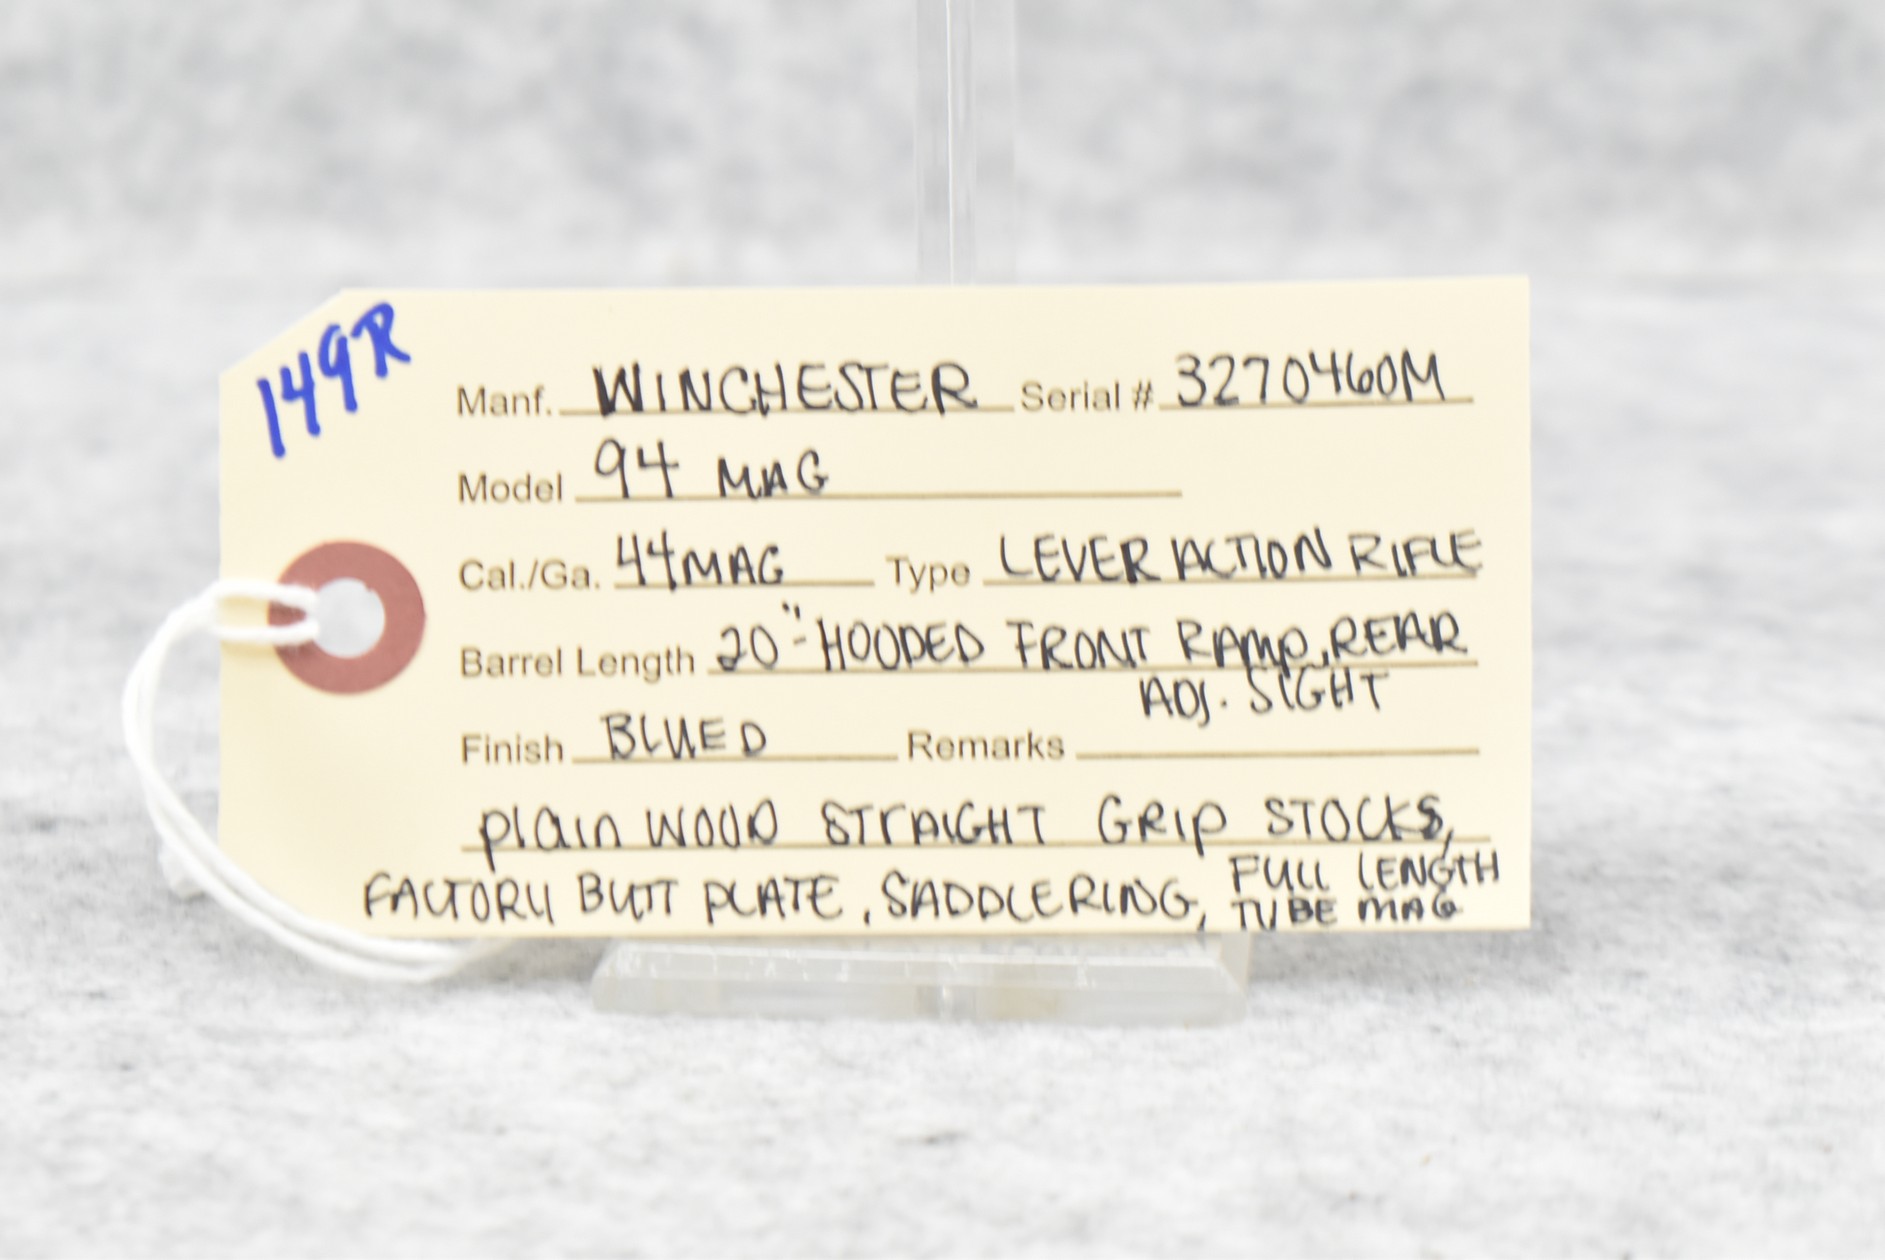 149R
Manf. WINCHESTER Serial # 3270460M
Model 94 MAG
Cal./Ga. 44MAG Type LEVER ACTION RIFLE
Barrel Length 20"-HOODED FRONT RAMP, REAR
ADJ. SIGHT
Finish BLUED Remarks
plain WOOD STRAIGHT GRIP STOCKS,
FACTORY BUTT PLATE, SADDLERING, FULL LENGTH
TUBE MAG